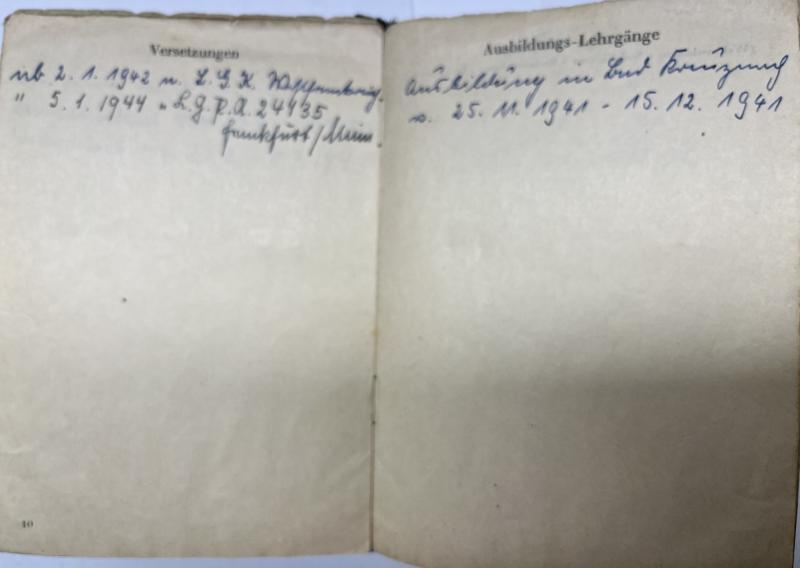 Versetzungen
ab 2. 1. 1942 n. L. G. K.
" 5. 1. 1944 " L. G. P. A. 24435
Frankfurt/Main.
10
Ausbildungs-Lehrgänge
Ausbildung in Bad Kreuznach
v. 25. 11. 1941 - 15. 12. 1941